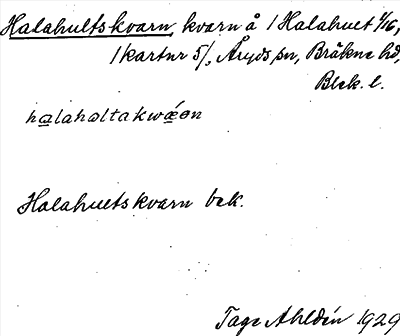 Halahultskvarn, kvarn å 1 Halahult 1/16,
1 kartur 5/, Åryds sn, Bräkne hd,
Blek. l.
halahəltakwǽən
Halahultskvarn bek.
Tage Ahldén 1929